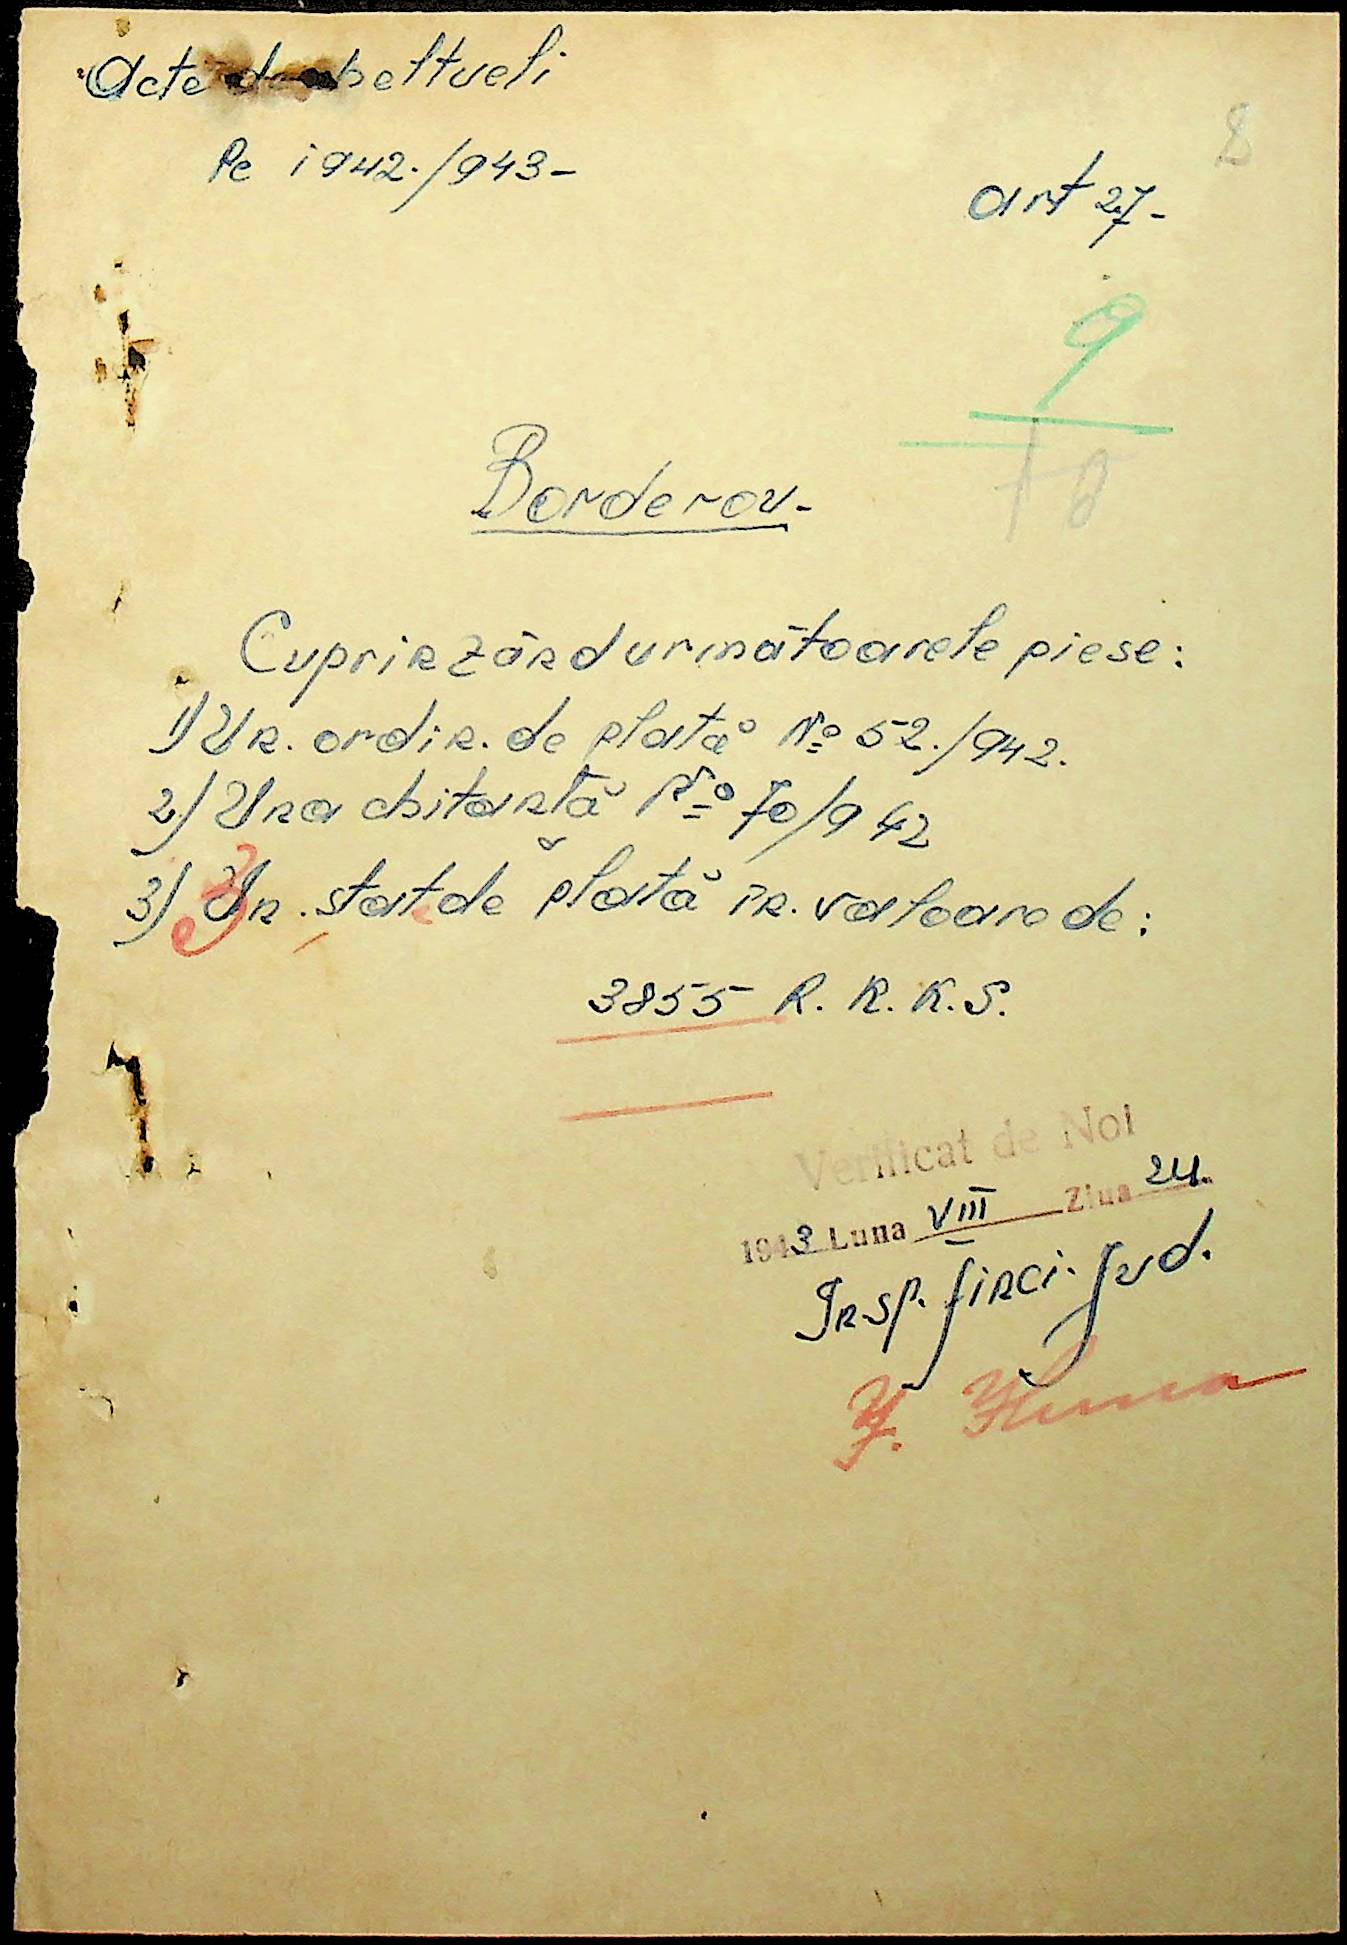 Acte de cheltueli
8
Pe 1942./943-
art 27-
9
18
Borderou-
Cuprinzând următoarele piese:
1) Un. ordin. de plată No 52./942.
2) Una chitanță No 70/942
3) Un. stat de plată în. valoare de:
3855 R. K. K. S.
Verificat de Noi
1943 Luna VIII Ziua 24.
Insp. finci. Jud.